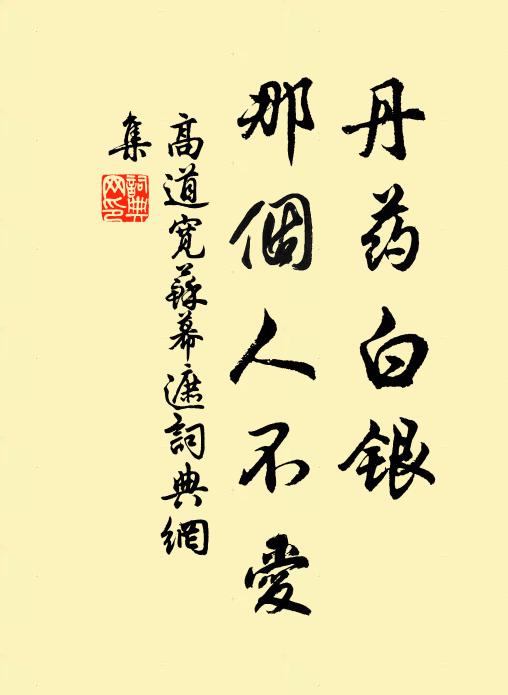 丹药白银
那個人不愛
高道寬蘇幕遮詞典網
集
詞典網印